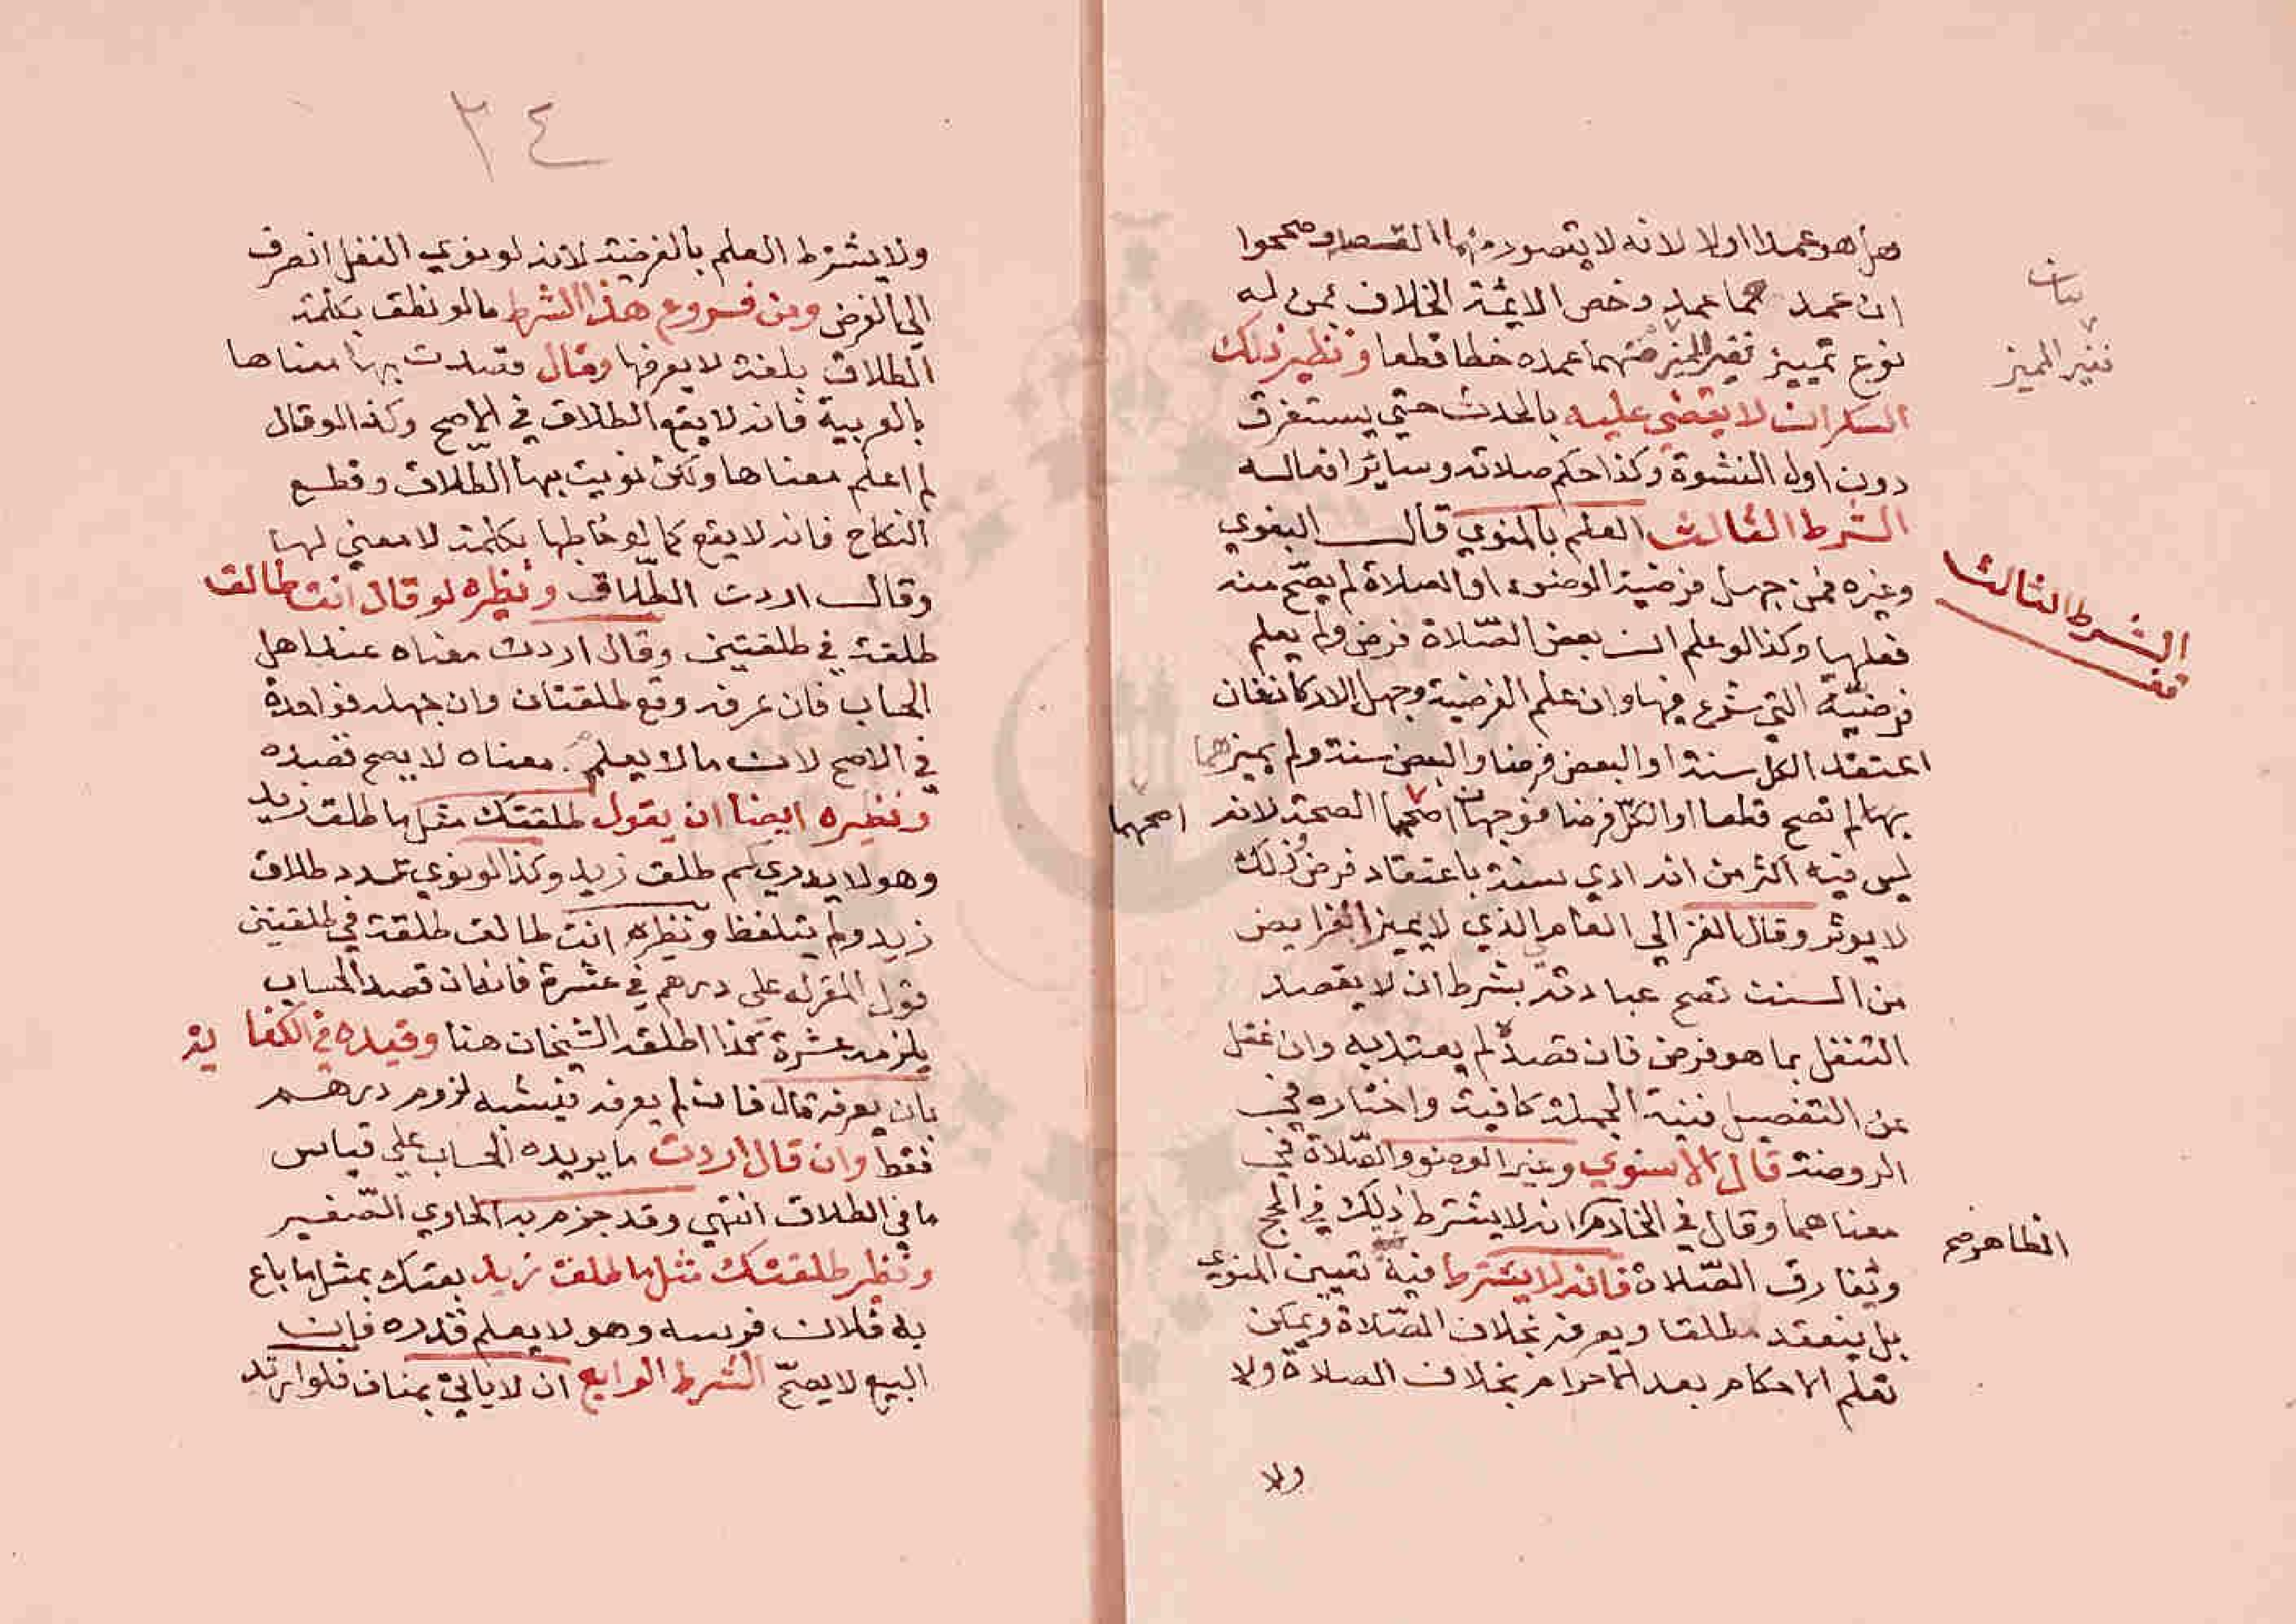 هل هو عمد اولا لانه لا يتصور منهما القصد وصححوا
ان عمدهما عمد وخص الايمة الخلاف بمن له
نوع تمييز فغير المميز منهما عمده خطا قطعا ونظير ذلك
السكران لا يقضى عليه بالحدث حتي يستغرق
دون اول النشوة وكذا حكم صلاته وساير افعاله
الشرط الثالث العلم بالمنوي قال البغوي
وغيره فمن جهل فرضية الوضوء او الصلاة لم يصح منه
فعلها وكذا لو علم ان بعض الصلاة فرض ولم يعلم
فرضية التي شرع فيها وان علم الفرضية وجهل الاركان فان
اعتقد الكل سنة او البعض فرضا والبعض سنة ولم يميزها
بها لم تصح قطعا او الكل فرضا فوجهان اصحهما الصحة لانه
ليس فيه اكثر من انه ادي سنة باعتقاد فرض وذلك
لا يوثر وقال الغزالي العامي الذي لا يميز الفرايض
من السنن تصح عبادته بشرط ان لا يقصد
التنفل بما هو فرض فان قصده لم يعتد به وان غفل
عن التفصيل فنية الجملة كافية واختاره في
الروضة قال الاسنوي وغير الوضو والصلاة في
معناهما وقال في الخادم انه لا يشترط ذلك في الحج
وتفارق الصلاة فانه لا يشترط فيه تعيين المنوي
بل ينعقد مطلقا ويعرفه بخلاف الصلاة ويمكن
تعلم الاحكام بعد الاحرام بخلاف الصلاة ولا
ولا
بيان
فغير المميز
الشرط الثالث
قف
اصحهما
الظاهر صح
٣٤
ولا يشترط العلم بالفرضية لانه لو نوي النفل انصرف
الي الفرض ومن فروع هذا الشرط ما لو نطق بكلمة
الطلاق بلغة لا يعرفها وقال قصدت بها معناها
بالعربية فانه لا يقع الطلاق في الاصح وكذا لو قال
لم اعلم معناها ولكن نويت بها الطلاق وقطع
النكاح فانه لا يقع كما لو خاطبها بكلمة لا معني لها
وقال اردت الطلاق ونظيره لو قال انت طالق
طلقة في طلقتين وقال اردت معناه عند اهل
الحساب فان عرفه وقع طلقتان وان جهله فواحدة
في الاصح لان ما لا يعلم معناه لا يصح قصده
ونظيره ايضا ان يقول طلقتك مثل ما طلق زيد
وهو لا يدري كم طلق زيد وكذا لو نوي عدد طلاق
زيد ولم يتلفظ ونظيره انت طالق طلقة في طلقتين
قول المقر له علي درهم في عشرة فانه ان قصد الحساب
يلزمه عشرة كذا اطلقه الشيخان هنا وقيده في الكفاية
بان يعرفه قال فان لم يعرفه فيشبه لزوم درهم
فقط وان قال اردت ما يريده الحساب علي قياس
ما في الطلاق انتهي وقد جزم به الحاوي الصغير
ونظير طلقتك مثل ما طلق زيد بعتك بمثل ما باع
به فلان فرسه وهو لا يعلم قدره فان
البيع لا يصح الشرط الرابع ان لا ياتي بمناف فلو ارتد